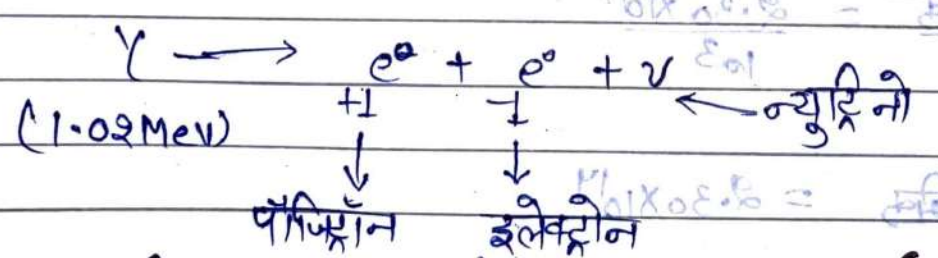 γ → e⁰ + e⁰ + ν
+1 -1 ← न्युट्रिनो
(1.02 MeV) ↓ ↓
पॉजिट्रॉन इलेक्ट्रोन